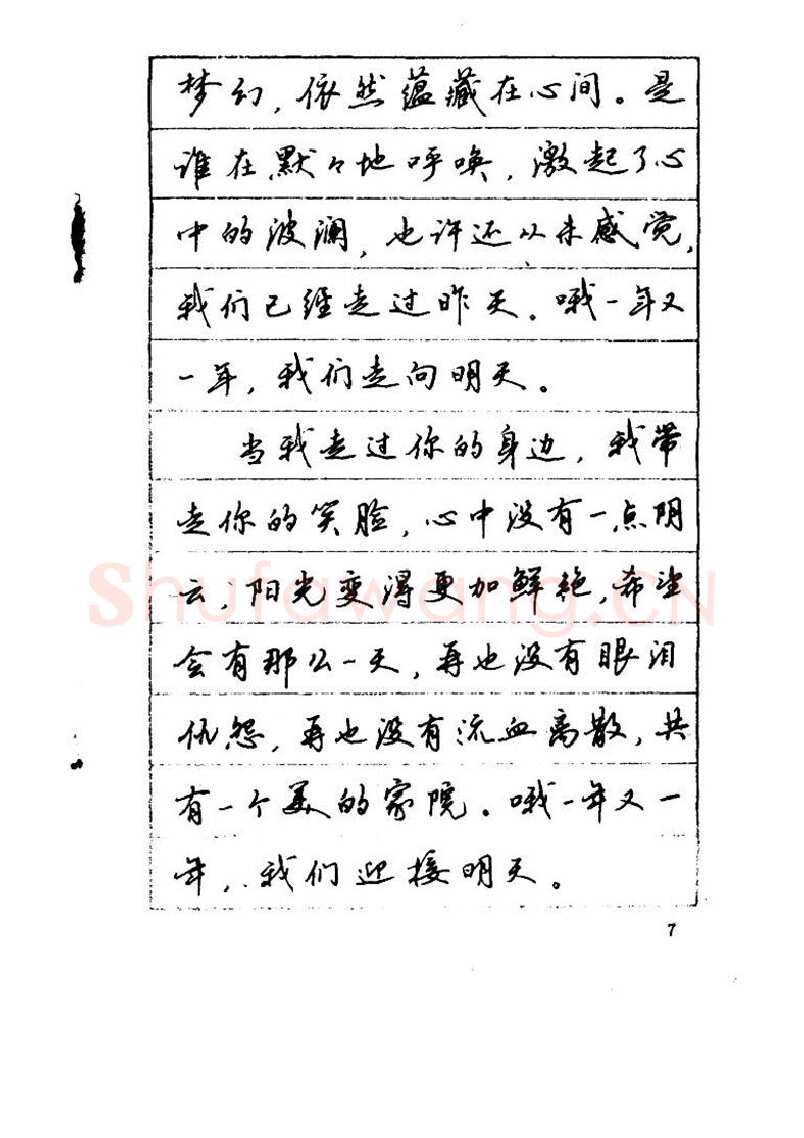 梦幻，依然蕴藏在心间。是
谁在默々地呼唤，激起了心
中的波澜，也许还从未感觉，
我们已经走过昨天。哦一年又
一年，我们走向明天。
当我走过你的身边，我带
走你的笑脸，心中没有一点阴
云，阳光变得更加鲜艳，希望
会有那么一天，再也没有眼泪
仇怨，再也没有流血离散，共
有一个美的家院。哦一年又一
年，我们迎接明天。
7
Shufawang.CN